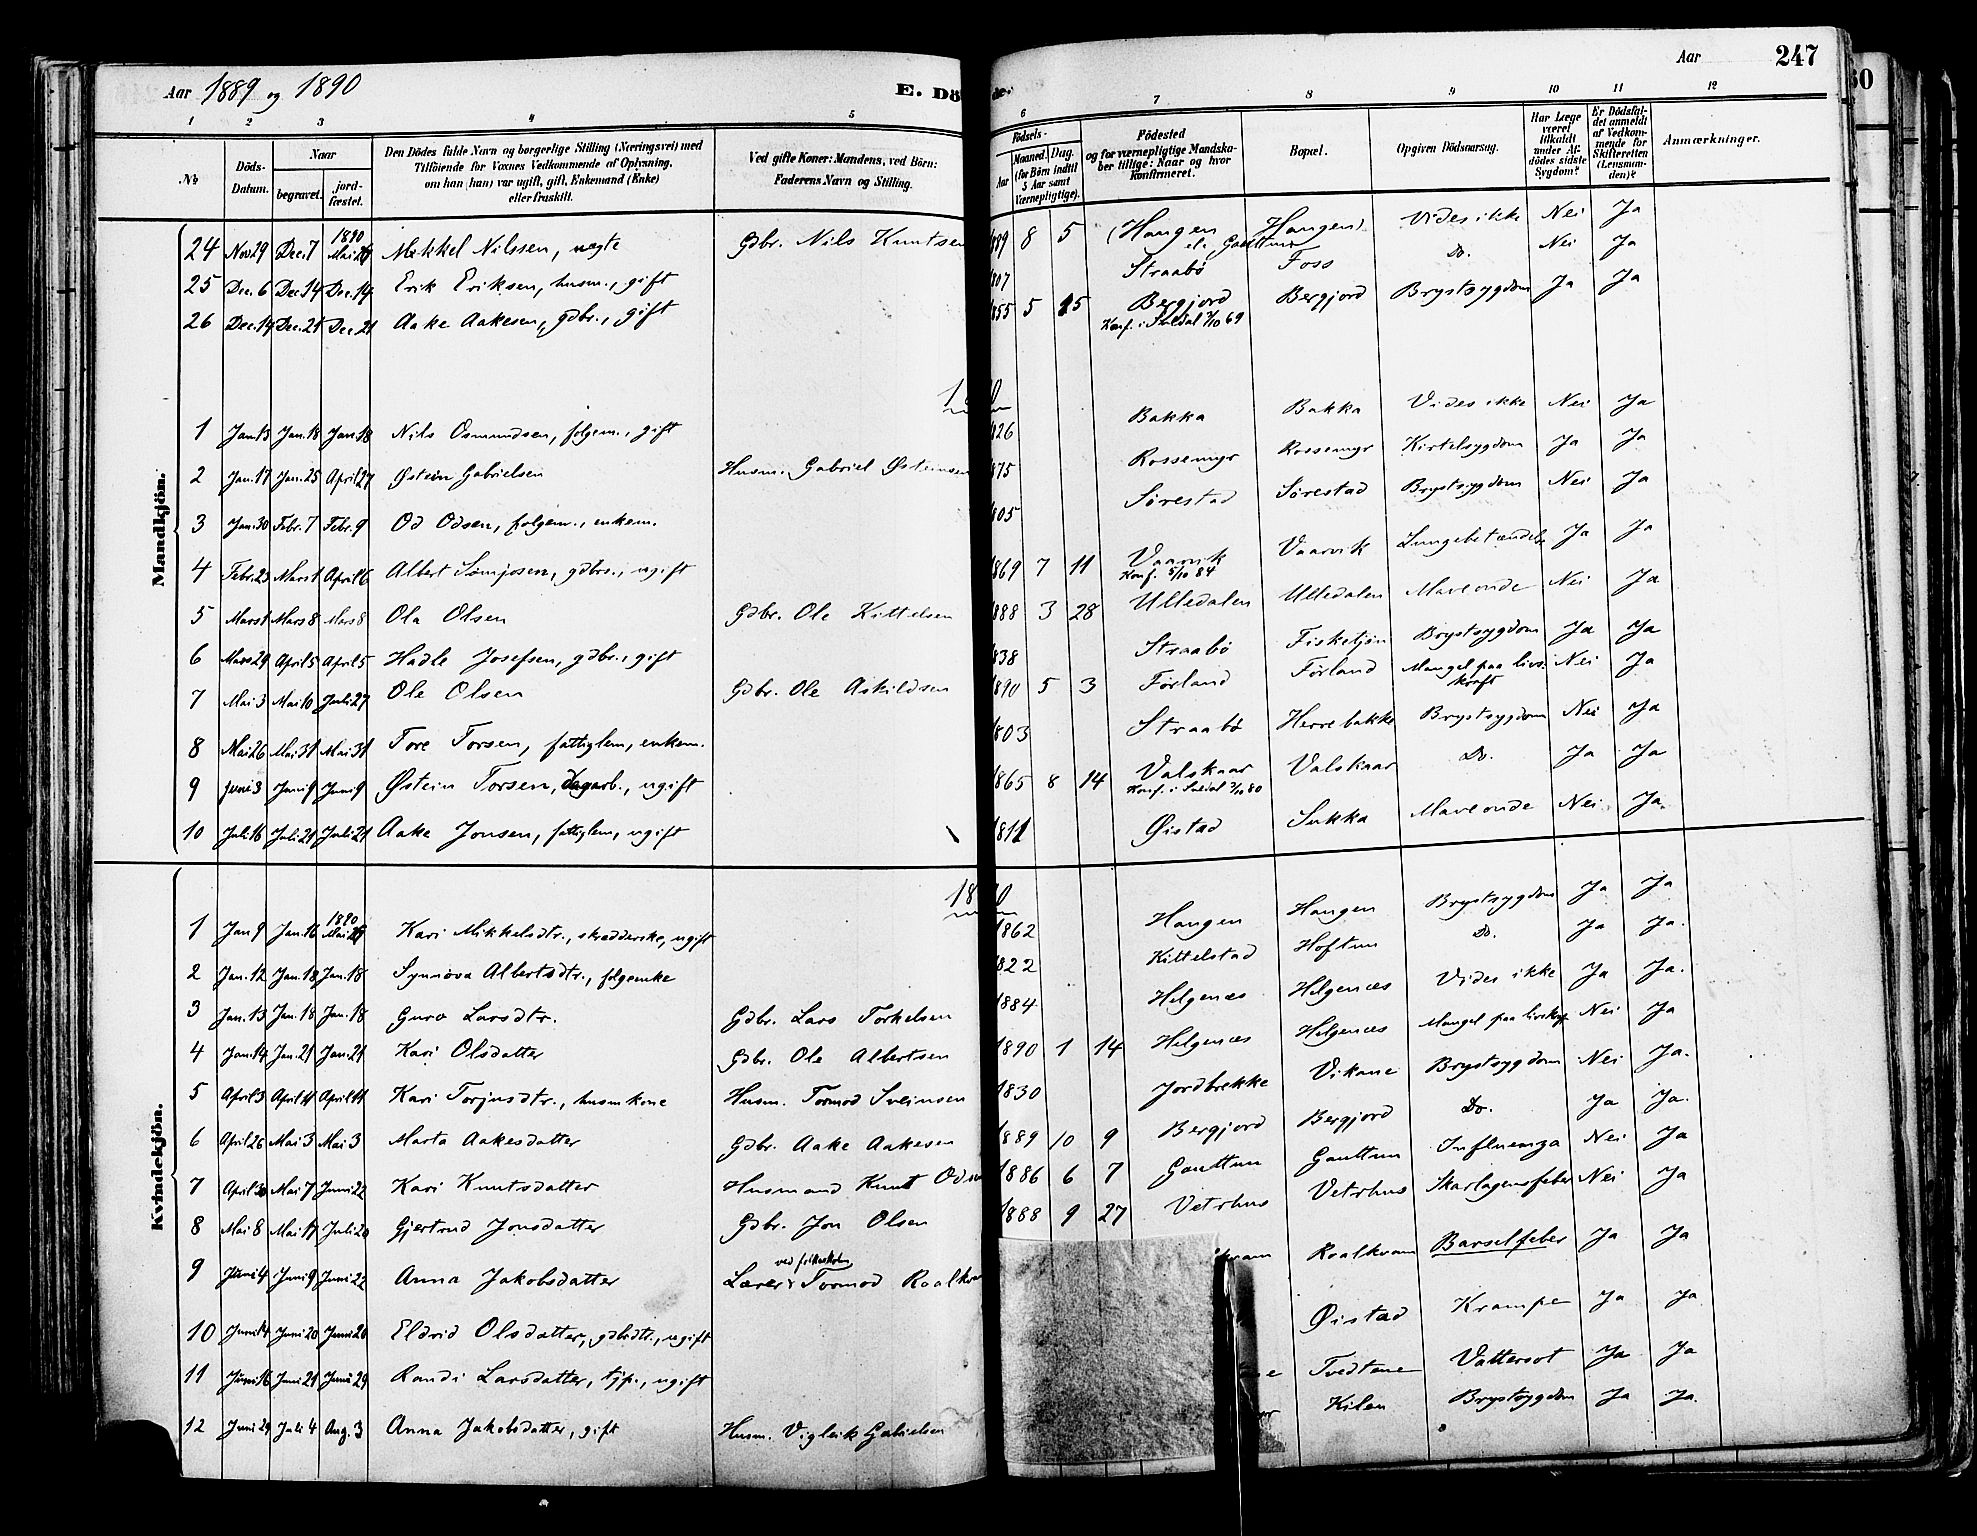 Aar 1889 og 1890 E. Dö de. Aar 247
1 2 3 4 5 6 7 8 9 10 11 12
No
Döds-Datum.
Naar
begravet.
jord-fæstet.
Den Dödes fulde Navn og borgerlige Stilling (Næringsvei) med
Tilföiende for Voxnes Vedkommende af Oplysning,
om han (hun) var ugift, gift, Enkemand (Enke)
eller fraskilt.
Ved gifte Koner: Mandens, ved Börn:
Faderens Navn og Stilling.
Födsels-
Aar
Maaned.
Dag.
(for Börn indtil
5 Aar samt
Værnepligtige).
Födested
og for værnepligtige Mandska-
ber tillige: Naar og hvor
Konfirmeret.
Bopæl.
Opgiven Dödsaarsag.
Har Læge
været
tilkaldt
under Af-
dödes sidste
Sygdom?
Er Dödsfal-
det anmeldt
af Vedkom-
mende for
Skifteretten
(Lensman-
den)?
Anmærkninger.
Mandkjön.
24 Nov 29 Dec. 7 1890 Mai Mikkel Nilssen, uægte Gdbr. Nils Knutsen 889 8 5 (Haugen Haugen) Vides ikke Nei Ja
25 Dec. 6 Dec 14 Dec. 14 Erik Eriksen, husm., gift 807 Straabø Foss Do. Nei Ja
26 Dec. 14 Dec. 21 Dec 21 Aake Aakesen, gdbr., gift 855 5 15 Bergjord Bergjord Brystsygdom Ja Ja
Konf. i Suldal 3/10 69
1 Jan. 13 Jan. 18 Jan. 18 Nils Osmundsen, folgem., gift 826 Bakka Bakka Vides ikke Nei Ja
2 Jan. 17 Jan. 25 April 27 Østein Gabrielsen Husm. Gabriel Østeinsen 875 Rossemyr Rossemyr Kirtelsygdom Ja Ja
3 Jan. 30 Febr. 7 Febr. 9 Od Odsen, folgem., enkem. 805 Sørestad Sørestad Brystsygdom Nei Ja
4 Febr. 23 Mars 1 April 6 Albert Sømjosen, gdbrs., ugift 869 7 11 Vaarvik Vaarvik Lungebetændelse Ja Ja
Konf. 5/10 84
5 Mars 1 Mars 8 Mars 8 Ola Olsen Gdbr. Ole Kittelsen 1888 3 28 Ulledalen Ulledalen Maveonde Nei Ja
6 Mars 29 April 5 April 5 Hadle Josefsen, gdbr., gift 838 Straabø Fisketjøn Brystsygdom Ja Ja
7 Mai 3 Mai 10 Juli 27 Ole Olsen Gdbr. Ole Askildsen 1890 5 3 Førland Førland Mangel paa livs- Nei Ja
kraft
8 Mai 26 Mai 31 Mai 31 Tore Torsen, fattiglem, enkem. 1803 Straabø Herrebakke Brystsygdom Nei Ja
9 Juni 3 Juni 9 Juni 9 Østein Torsen, Dagarb., ugift 1865 8 14 Valskaar Valskaar Do. Ja Ja
Konf. i Suldal 3/10 80
10 Juli 16 Juli 21 Juli 21 Aake Jonsen, fattiglem, ugift 1811 Øistad Sukka Maveonde Nei Ja.
Kvindekjön.
1 Jan 9 Jan. 16 1890 Mai Kari Mikkelsdtr., skrædderske, ugift 1862 Haugen Haugen Brystsygdom Ja Ja
2 Jan. 12 Jan. 18 Jan. 18 Synnøva Albertsdtr., folgeenke 1822 Kittelstad Hoftun Do. Ja Ja.
3 Jan. 13 Jan. 18 Jan. 18 Guro Larsdtr. Gdbr. Lars Torkelsen 1884 Helgenæs Helgenæs Vides ikke Ja Ja.
4 Jan. 14 Jan. 21 Jan. 21 Kari Olsdatter Gdbr. Ole Albertsen 1890 1 14 Helgenæs Helgenæs Mangel paa livskraft Nei Ja
5 April 3 April 11 April 11 Kari Torjusdtr., husmkone Husm. Tormod Sveinsen 1830 Jordbrekke Vikane Brystsygdom Nei Ja.
6 April 26 Mai 3 Mai 3 Marta Aakesdatter Gdbr. Aake Aakesen 1889 10 9 Bergjord Bergjord Do. Ja Ja.
7 April 30 Mai 7 Juni 22 Kari Knutsdatter Husmand Knut Odsen 1886 6 7 Gauttun Gauttun Influenza Nei Ja
8 Mai 8 Mai 17 Juli 20 Gjertrud Jonsdatter Gdbr. Jon Olsen 1888 9 27 Vetrhus Vetrhus Skarlagensfeber Nei Ja
9 Juni 4 Juni 9 Juni 22 Anna Jakobsdatter Lærer Tormod Roalkvam kvam Roalkvam Barselfeber Ja Ja
10 Juni 14 Juni 20 Juni 20 Eldrid Olsdatter, gdbdtr., ugift Øistad Krampe Ja Ja
11 Juni 16 Juni 21 Juni 29 Randi Larsdatter, tjp., ugift Tvedtene Vattersot Ja Ja
12 Juni 29 Juli 4 Aug. 3 Anna Jakobsdatter, gift Husm. Vigleik Gabrielsen Kilen Brystsygdom Ja Ja.